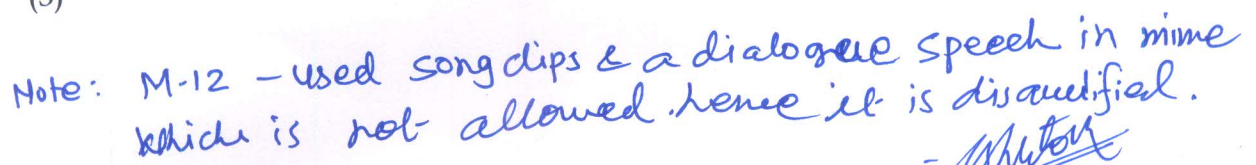 (3)
Note: M-12 - used song clips & a dialogue speech in mime
which is not allowed. hence it is disqualified.